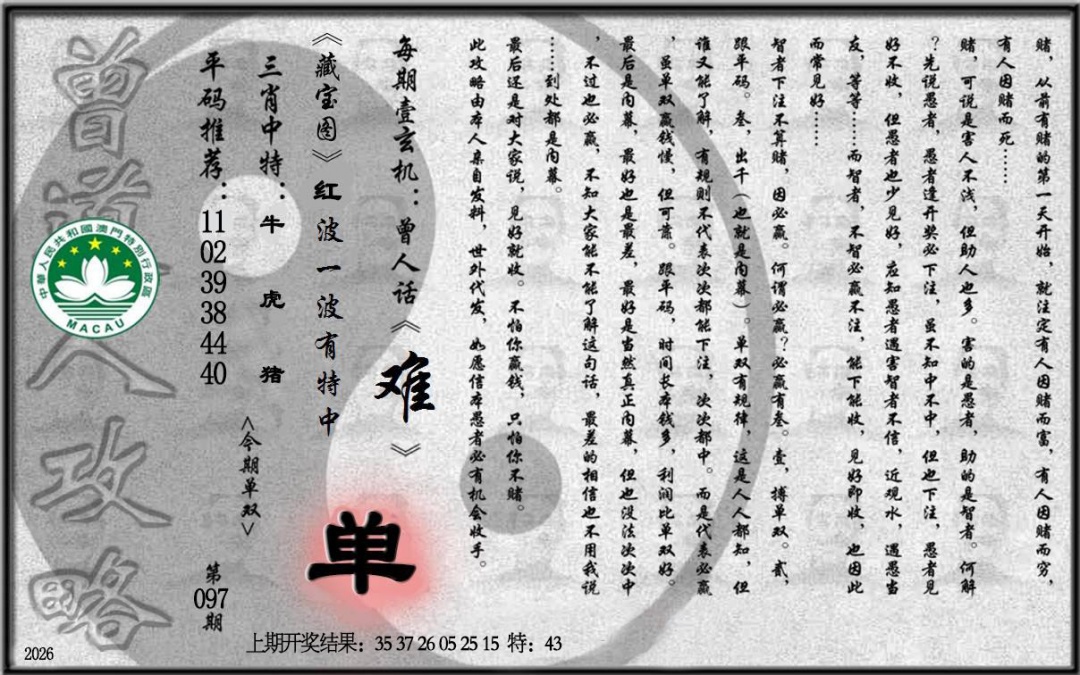 赌，从前有赌的第一天开始，就注定有人因赌而富，有人因赌而穷，
有人因赌而死……
赌，可说是害人不浅，但助人也多。害的是愚者，助的是智者。何解
？先说愚者，愚者逢开奖必下注，虽不知中不中，但也下注，愚者见
好不收，但愚者也少见好，应知愚者遇害智者不信，近观水，遇愚当
友，等等……而智者，不智必赢不注，能下能收，见好即收，也因此
而常见好……
智者下注不算赌，因必赢。何谓必赢？必赢有叁。壹，搏单双。贰，
跟单码。叁，出千（也就是内幕）。单双有规律，这是人人都知，但
谁又能了解，有规则不代表次次都能下注，次次都中。而是代表必赢
，虽单双赢钱慢，但可靠。跟单码，时间长本钱多，利润比单双好。
最后是内幕，最好也是最差，最好是当然真正内幕，但也没法次次中
，不过也必赢，不知大家能不能了解这句话，最差的相信也不用我说
……到处都是内幕。
最后还是对大家说，见好就收。不怕你赢钱，只怕你不赌。
此攻略由本人亲自发料，世外代发，如愿信本愚者必有机会收手。
每期壹玄机：曾人话《难》
《藏宝图》红波一波有特中
单
三肖中特：牛 虎 猪
<今期单双>
平码推荐：11 02 39 38 44 40
第097期
曾道人攻略
中華人民共和國澳門特別行政區
MACAU
上期开奖结果：35 37 26 05 25 15 特：43
2026